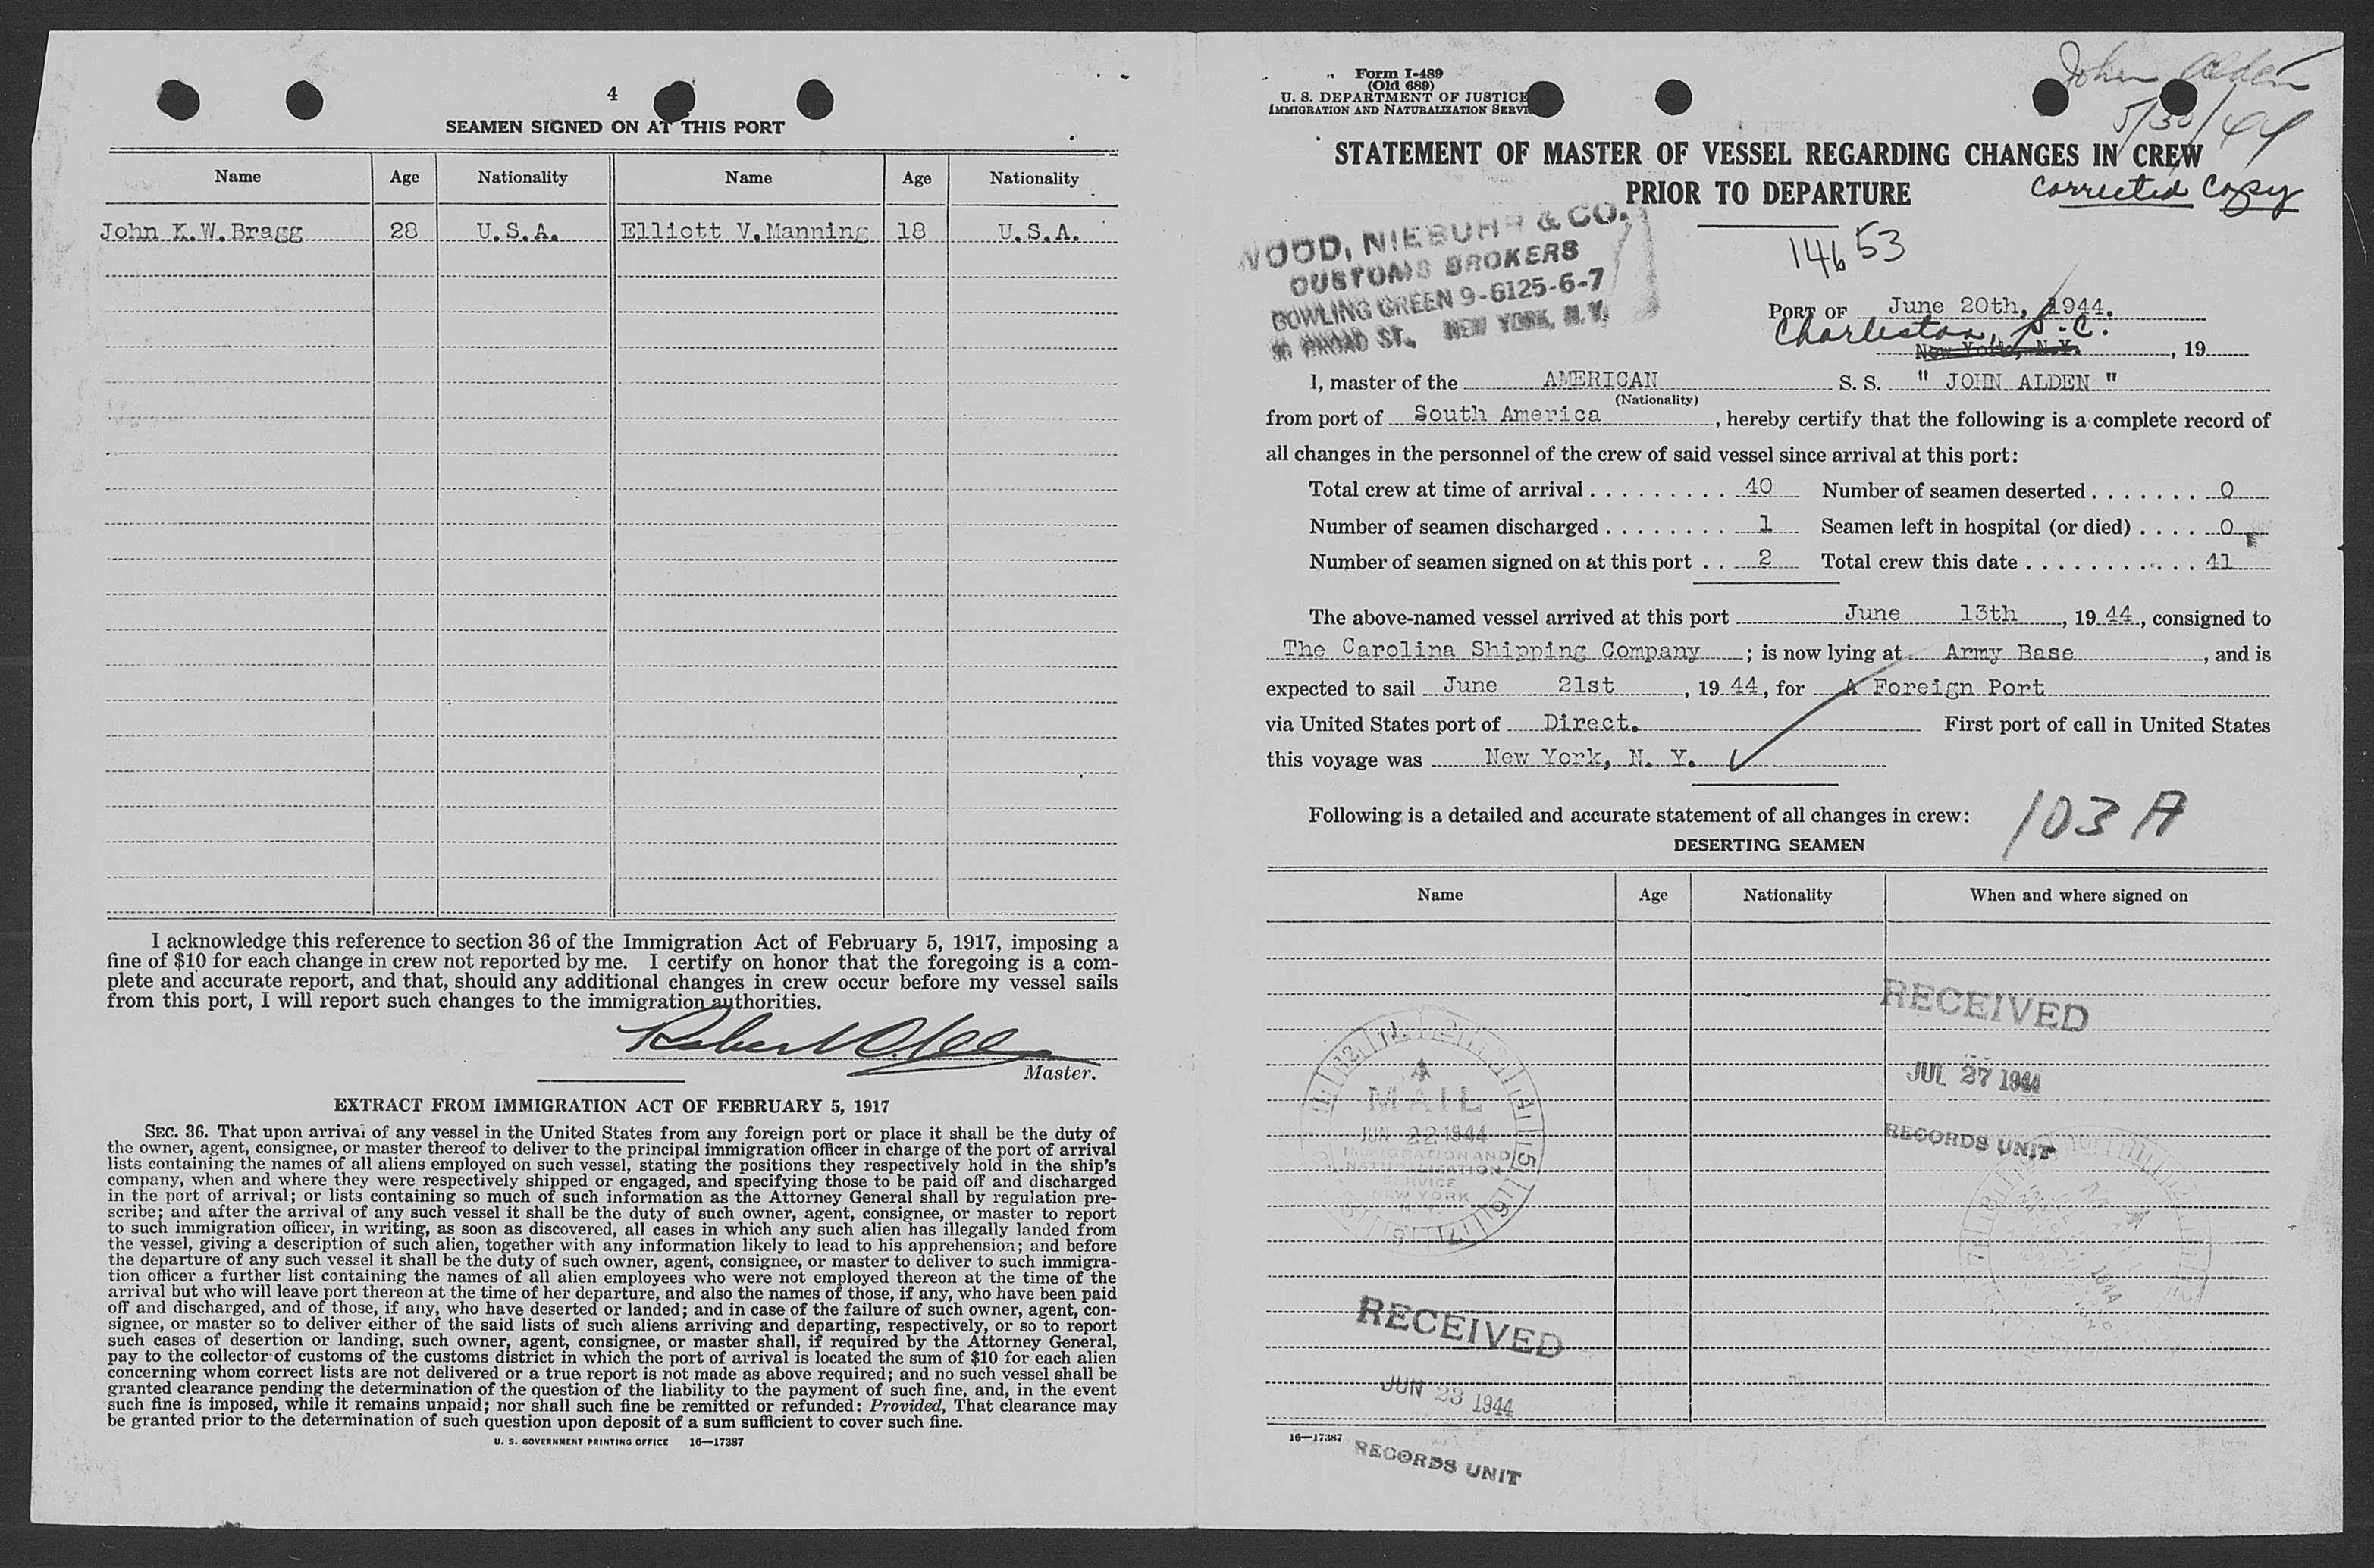 4
SEAMEN SIGNED ON AT THIS PORT
Name Age Nationality Name Age Nationality
John K.W.Bragg 28 U.S.A. Elliott V.Manning 18 U.S.A.
I acknowledge this reference to section 36 of the Immigration Act of February 5, 1917, imposing a
fine of $10 for each change in crew not reported by me. I certify on honor that the foregoing is a com-
plete and accurate report, and that, should any additional changes in crew occur before my vessel sails
from this port, I will report such changes to the immigration authorities.
Master.
EXTRACT FROM IMMIGRATION ACT OF FEBRUARY 5, 1917
SEC. 36. That upon arrival of any vessel in the United States from any foreign port or place it shall be the duty of
the owner, agent, consignee, or master thereof to deliver to the principal immigration officer in charge of the port of arrival
lists containing the names of all aliens employed on such vessel, stating the positions they respectively hold in the ship's
company, when and where they were respectively shipped or engaged, and specifying those to be paid off and discharged
in the port of arrival; or lists containing so much of such information as the Attorney General shall by regulation pre-
scribe; and after the arrival of any such vessel it shall be the duty of such owner, agent, consignee, or master to report
to such immigration officer, in writing, as soon as discovered, all cases in which any such alien has illegally landed from
the vessel, giving a description of such alien, together with any information likely to lead to his apprehension; and before
the departure of any such vessel it shall be the duty of such owner, agent, consignee, or master to deliver to such immigra-
tion officer a further list containing the names of all alien employees who were not employed thereon at the time of the
arrival but who will leave port thereon at the time of her departure, and also the names of those, if any, who have been paid
off and discharged, and of those, if any, who have deserted or landed; and in case of the failure of such owner, agent, con-
signee, or master so to deliver either of the said lists of such aliens arriving and departing, respectively, or so to report
such cases of desertion or landing, such owner, agent, consignee, or master shall, if required by the Attorney General,
pay to the collector of customs of the customs district in which the port of arrival is located the sum of $10 for each alien
concerning whom correct lists are not delivered or a true report is not made as above required; and no such vessel shall be
granted clearance pending the determination of the question of the liability to the payment of such fine, and, in the event
such fine is imposed, while it remains unpaid; nor shall such fine be remitted or refunded: Provided, That clearance may
be granted prior to the determination of such question upon deposit of a sum sufficient to cover such fine.
U. S. GOVERNMENT PRINTING OFFICE 16—17387
Form I-489
(Old 689)
U. S. DEPARTMENT OF JUSTICE
IMMIGRATION AND NATURALIZATION SERVI
John Alden
5/30/44
STATEMENT OF MASTER OF VESSEL REGARDING CHANGES IN CREW
PRIOR TO DEPARTURE
Corrected Copy
WOOD, NIEBUHR & CO.
CUSTOMS BROKERS
BOWLING GREEN 9-6125-6-7
BROAD ST., NEW YORK, N.Y.
14653
PORT OF June 20th, 1944.
Charleston, S.C.
New York, N.Y. , 19
I, master of the AMERICAN S. S. " JOHN ALDEN "
(Nationality)
from port of South America , hereby certify that the following is a complete record of
all changes in the personnel of the crew of said vessel since arrival at this port:
Total crew at time of arrival . . . . . . . . . 40 Number of seamen deserted . . . . . . . 0
Number of seamen discharged . . . . . . . . 1 Seamen left in hospital (or died) . . . . 0
Number of seamen signed on at this port . . 2 Total crew this date . . . . . . . . . . . . 41
The above-named vessel arrived at this port June 13th , 19 44 , consigned to
The Carolina Shipping Company ; is now lying at Army Base , and is
expected to sail June 21st , 19 44 , for A Foreign Port
via United States port of Direct. First port of call in United States
this voyage was New York, N. Y.
Following is a detailed and accurate statement of all changes in crew:
103 A
DESERTING SEAMEN
Name Age Nationality When and where signed on
RECEIVED
JUL 27 1944
RECORDS UNIT
MAIL
JUN 22 1944
IMMIGRATION AND
NATURALIZATION
SERVICE
NEW YORK
RECEIVED
JUN 23 1944
16—17387
RECORDS UNIT